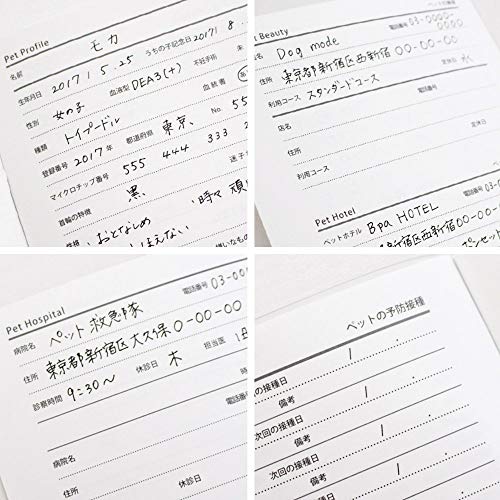 Pet Profile
名前 モカ
生年月日 2017 / 5 . 25 うちの子記念日 2017 / 8 .
性別 女の子 血液型 DEA3(+) 不妊手術 未
種類 トイプードル 血統書
登録番号 2017年 都道府県 東京 No. 55
マイクロチップ番号 555 444 333 2
首輪の特徴 黒 迷子
性格 おとなしめ 時々 頑
ほえない
Beauty
Dog mode 電話番号 03-0000-
0000
住所 東京都新宿区西新宿00-00-00
利用コース スタンダードコース 定休日 水
店名 電話番号
住所
定休日
利用コース
Pet Hotel
ペットホテル Bpa HOTEL 電話番号 03-0000-
新宿区西新宿00-00-0
Pet Hospital
病院名 ペット救急隊 電話番号 03-00
住所 東京都新宿区大久保0-00-00
診察時間 9:30〜 休診日 木 担当医
病院名 電話番号
住所 休診日
ペットの予防接種
の接種日 / .
備考
次回の接種日 / .
備考
次回の接種日 / .
備考
次回の接種日 / .
備考